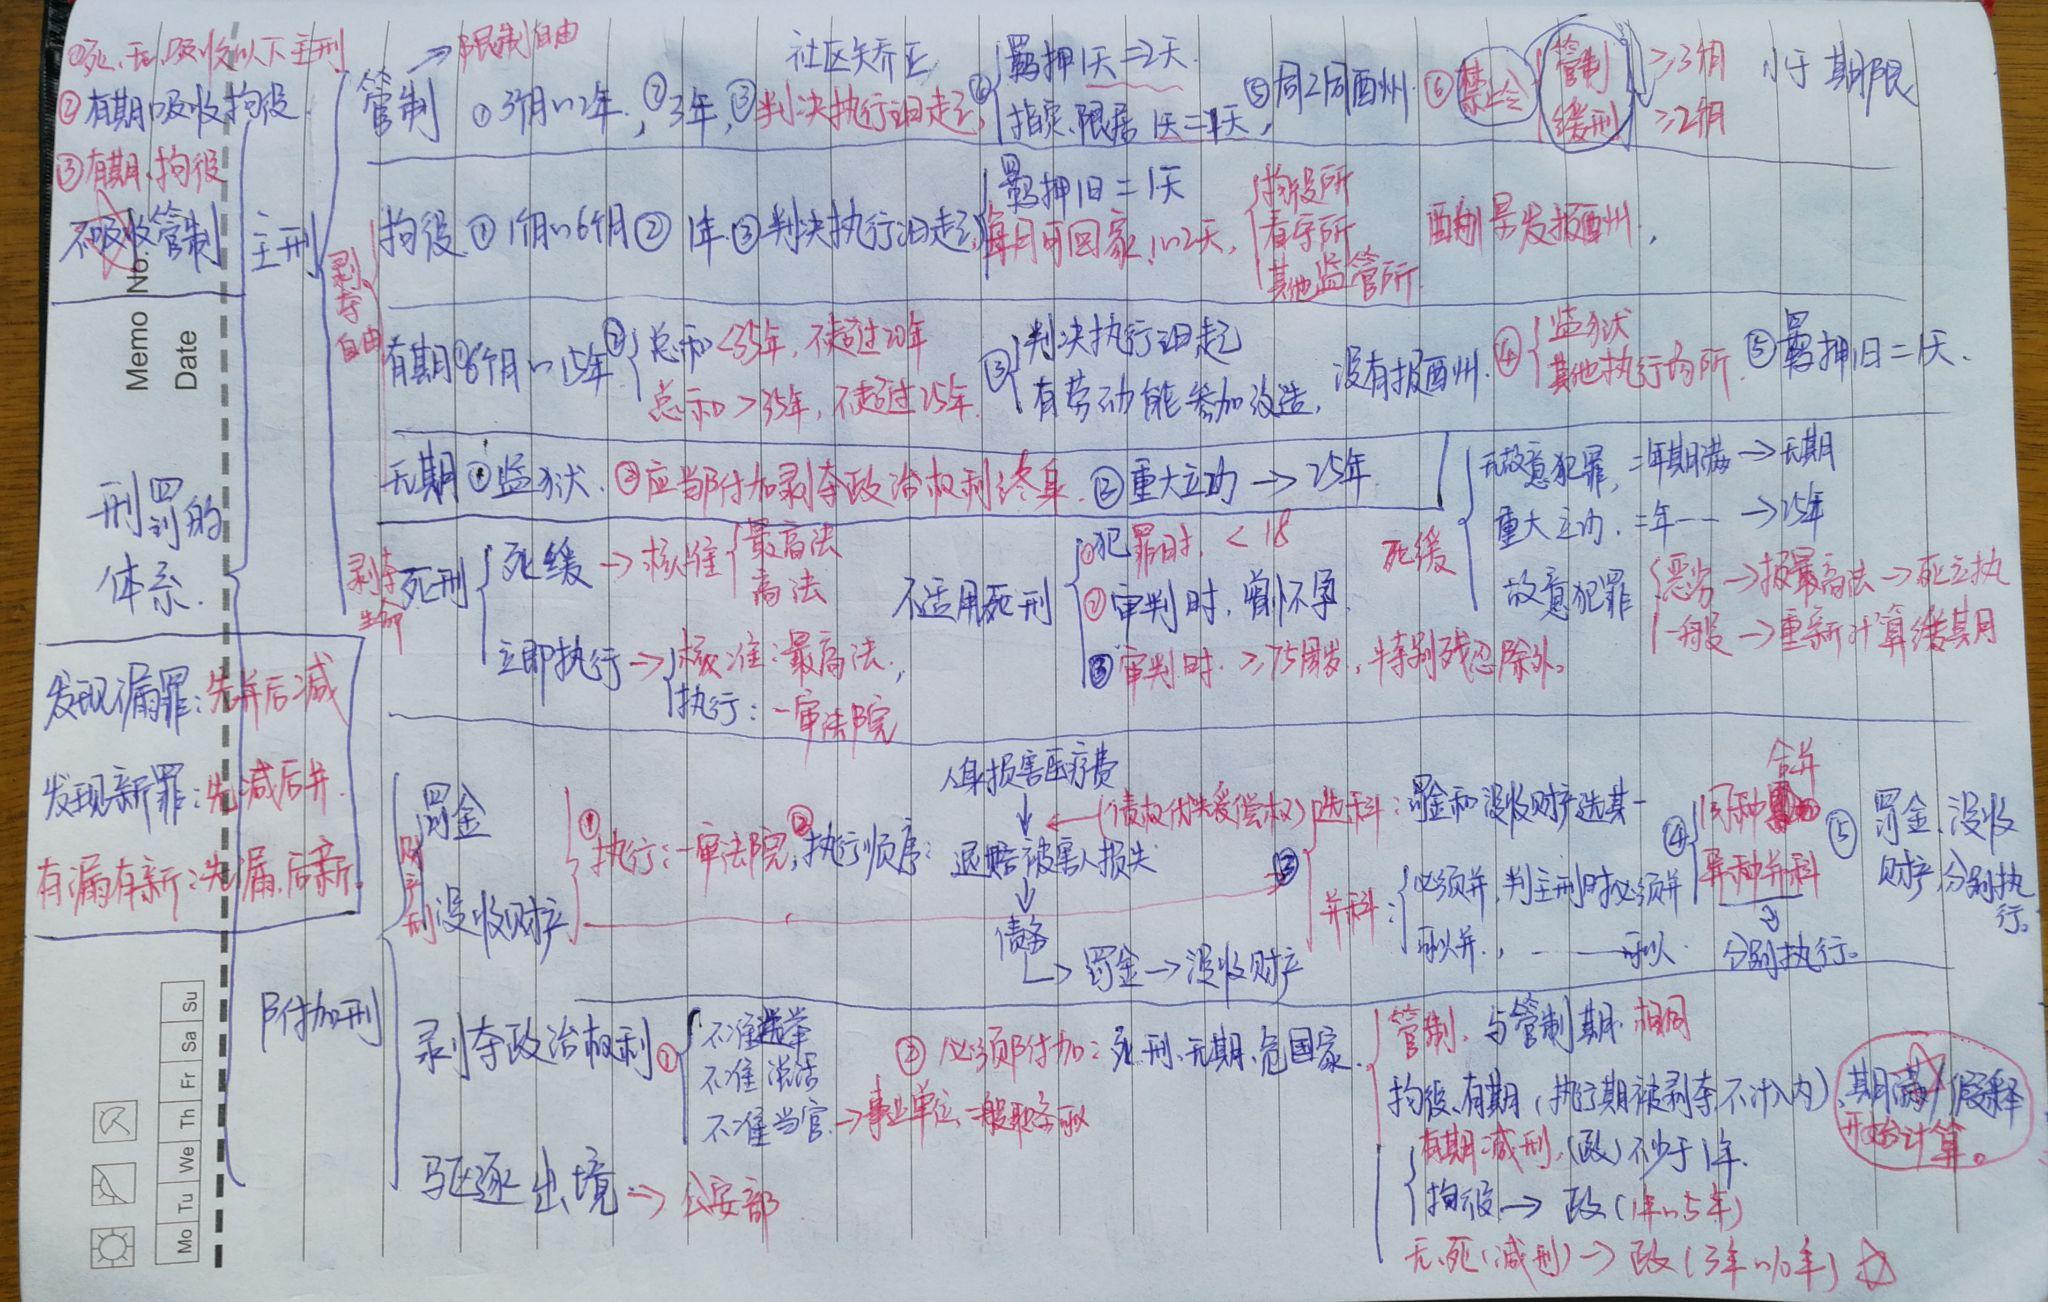 ①死、无、吸收以下主刑
②有期吸收拘役
③有期、拘役
不吸收管制
Memo No.
Date
刑罚的
体系.
发现漏罪:先并后减
发现新罪:先减后并.
有漏有新:先漏,后新.
Mo Tu We Th Fr Sa Su
主刑
→限制自由
剥夺
自由
剥夺
生命
管制 ①3个月~2年, ②3年, ③判决执行日起,
社区矫正
④
羁押1天=2天.
指定、限居 1天=1天,
⑤同工同酬 ⑥禁止令
管制
缓刑
≥3个月
≥2个月
小于期限
拘役 ①1个月~6个月 ②1年 ③判决执行日起
羁押1日=1天
每月可回家1~2天,
拘役所
看守所
其他监管所
酌量发报酬,
有期①6个月~15年 ②
总和<35年, 不超过20年
总和>35年, 不超过25年.
③
判决执行日起
有劳动能参加改造,
没有报酬. ④
监狱
其他执行场所
⑤羁押1日=1天.
无期①监狱. ②应当附加剥夺政治权利终身. ③重大立功→25年
死刑
死缓→核准
最高法
高法
立即执行→
核准:最高法.
执行:一审法院
不适用死刑
①犯罪时, <18
②审判时, 怀孕.
③审判时 ≥75周岁, 特别残忍除外。
死缓
无故意犯罪, 二年期满→无期
重大立功, 二年--→25年
故意犯罪
恶劣→报最高法→死立执
一般→重新计算缓期
附加刑
财产刑
罚金
没收财产
①执行:一审法院, ②执行顺序:
人身损害医疗费
↓
←(债权优先受偿权)
退赔被害人损失
↓
债务
→罚金→没收财产
③
选科:罚金和没收财产选其一
并科:
必须并, 判主刑时必须并
可以并, -----可以.
④
同种合并
异种并科
分别执行。
⑤罚金、没收
财产, 分别执
行。
剥夺政治权利①
不准选举
不准说话
不准当官→事业单位、一般职务可以
②必须附加:死刑、无期、危国家.
管制, 与管制期相同
拘役、有期(执行期被剥夺,不计入内)、期满/假释
开始计算。
有期减刑, (政)不少于1年.
拘役→政(1年~5年)
无、死(减刑)→政(3年~10年)
驱逐出境→公安部